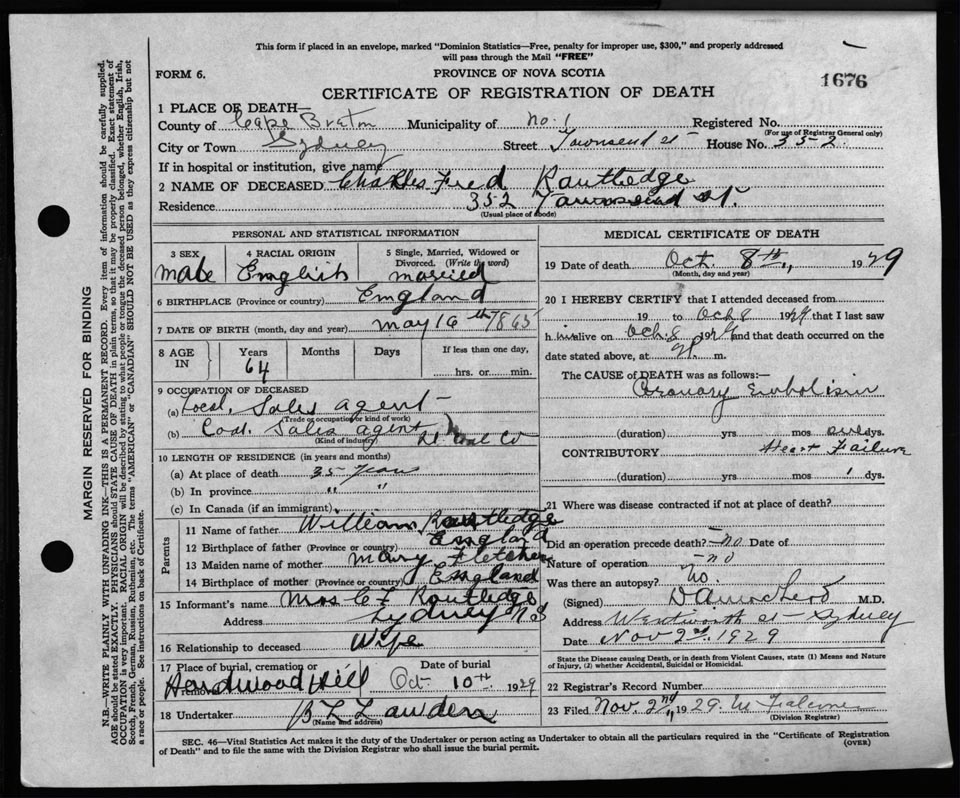 This form if placed in an envelope, marked "Dominion Statistics—Free, penalty for improper use, $300," and properly addressed
will pass through the Mail "FREE"
FORM 6.
PROVINCE OF NOVA SCOTIA
1676
CERTIFICATE OF REGISTRATION OF DEATH
1 PLACE OF DEATH—
County of Cape Breton Municipality of No. 1 Registered No.
(For use of Registrar General only)
City or Town Sydney Street Townsend St House No. 352
If in hospital or institution, give name
2 NAME OF DECEASED Charles Fred Routledge
Residence 352 Townsend St.
(Usual place of abode)
PERSONAL AND STATISTICAL INFORMATION
3 SEX 4 RACIAL ORIGIN 5 Single, Married, Widowed or
Divorced. (Write the word)
male English married
6 BIRTHPLACE (Province or country) England
7 DATE OF BIRTH (month, day and year) May 16th 1865
8 AGE IN Years Months Days If less than one day,
64 hrs. or min.
9 OCCUPATION OF DECEASED
(a) Local, Sales agent
(Trade or occupation or kind of work)
(b) Coal Sales agent
(Kind of industry)
10 LENGTH OF RESIDENCE (in years and months)
(a) At place of death 35 Years
(b) In province " "
(c) In Canada (if an immigrant)
Parents
11 Name of father William Routledge
12 Birthplace of father (Province or country) England
13 Maiden name of mother Mary Fletcher
14 Birthplace of mother (Province or country) England
15 Informant's name Mrs C F Routledge
Address Sydney N S
16 Relationship to deceased Wife
17 Place of burial, cremation or
removal Hardwood Hill
Date of burial
Oct 10th 1929
18 Undertaker B L Lawden
(Name and address)
MEDICAL CERTIFICATE OF DEATH
19 Date of death Oct. 8th, 1929
(Month, day and year)
20 I HEREBY CERTIFY that I attended deceased from
19 to Oct 8 1929 that I last saw
him alive on Oct. 8 1929 and that death occurred on the
date stated above, at m.
The CAUSE of DEATH was as follows:—
Coronary Embolism
(duration) yrs mos dys.
CONTRIBUTORY Heart Failure
(duration) yrs mos 1 dys.
21 Where was disease contracted if not at place of death?
Did an operation precede death? no Date of
Nature of operation no
Was there an autopsy? No.
(Signed) M.D.
Address Wentworth St Sydney
Date Nov 2nd, 1929
State the Disease causing Death, or in Death from Violent Causes, state (1) Means and Nature
of Injury, (2) whether Accidental, Suicidal or Homicidal.
22 Registrar's Record Number
23 Filed Nov. 2nd, 1929.
(Division Registrar)
SEC. 46—Vital Statistics Act makes it the duty of the Undertaker or person acting as Undertaker to obtain all the particulars required in the "Certificate of Registration
of Death" and to file the same with the Division Registrar who shall issue the burial permit.
(OVER)
MARGIN RESERVED FOR BINDING
N.B.—WRITE PLAINLY WITH UNFADING INK—THIS IS A PERMANENT RECORD. Every item of information should be carefully supplied.
AGE should be stated EXACTLY. PHYSICIANS should STATE CAUSE OF DEATH in plain terms, so that it may be properly classified. Exact statement of
OCCUPATION is very important. RACIAL ORIGIN will be described by stating to what people or tongue the deceased person belonged, whether English, Irish,
Scotch, French, German, Russian, Ruthenian, etc. The terms "AMERICAN" or "CANADIAN" SHOULD NOT BE USED as they express citizenship but not
a race or people. See instructions on back of Certificate.